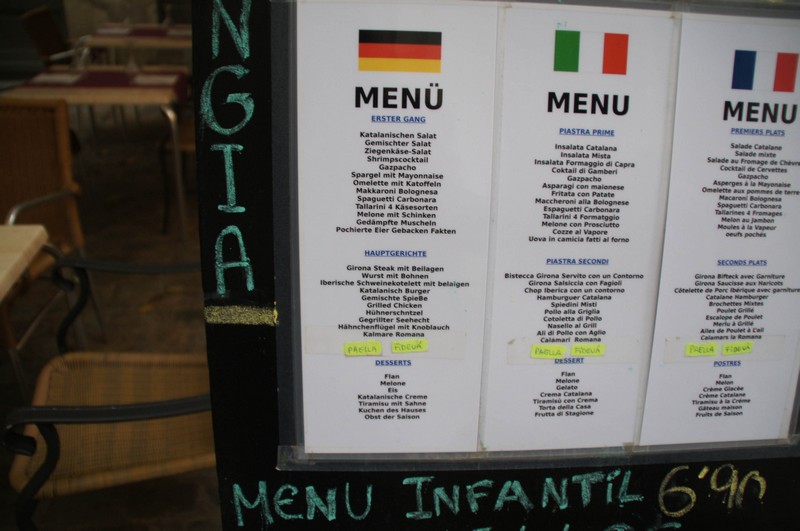 NGIA
MENÜ
ERSTER GANG
Katalanischen Salat
Gemischter Salat
Ziegenkäse-Salat
Shrimpscocktail
Gazpacho
Spargel mit Mayonnaise
Omelette mit Katoffeln
Makkaroni Bolognesa
Spaguetti Carbonara
Tallarini 4 Käsesorten
Melone mit Schinken
Gedämpfte Muscheln
Pochierte Eier Gebacken Fakten
HAUPTGERICHTE
Girona Steak mit Beilagen
Wurst mit Bohnen
Iberische Schweinekotelett mit belaigen
Katalanisch Burger
Gemischte Spieße
Grilled Chicken
Hühnerschntzel
Gegrillter Seehecht
Hähnchenflügel mit Knoblauch
Kalmare Romana
PAELLA FIDEUÀ
DESSERTS
Flan
Melone
Eis
Katalanische Creme
Tiramisu mit Sahne
Kuchen des Hauses
Obst der Saison
MENU
PIASTRA PRIME
Insalata Catalana
Insalata Mista
Insalata Formaggio di Capra
Coktail di Gamberi
Gazpacho
Asparagi con maionese
Fritata con Patate
Maccheroni alla Bolognese
Espaguetti Carbonara
Tallarini 4 Formatggio
Melone con Prosciutto
Cozze al Vapore
Uova in camicia fatti al forno
PIASTRA SECONDI
Bistecca Girona Servito con un Contorno
Girona Salsiccia con Fagioli
Chop Iberica con un contorno
Hamburguer Catalana
Spiedini Misti
Pollo alla Griglia
Cotoletta di Pollo
Nasello al Grill
Ali di Pollo con Aglio
Calamari Romana
PAELLA FIDEUÀ
DESSERT
Flan
Melone
Gelato
Crema Catalana
Tiramisù con Crema
Torta della Casa
Frutta di Stagione
MENU
PREMIERS PLATS
Salade Catalane
Salade mixte
Salade au Fromage de Chèvre
Cocktail de Cervettes
Gazpacho
Asperges à la Mayonaise
Omelette aux pommes de terre
Macaroni Bolognesa
Spaguetti Carbonara
Tallarines 4 Fromages
Melon au Jambon
Moules à la Vapeur
oeufs pochés
SECONDS PLATS
Girona Bifteck avec Garniture
Girona Saucisse aux Haricots
Côtelette de Porc Ibérique avec garniture
Catalane Hamburger
Brochettes Mixtes
Poulet Grillé
Escalope de Poulet
Merlu à Grille
Ailes de Poulet à L'ail
Calamars la Romana
PAELLA FIDEUÀ
POSTRES
Flan
Melon
Crème Glacée
Crème Catalane
Tiramisu à la Crème
Gâteau maison
Fruits de Saison
MENU INFANTIL 6'90